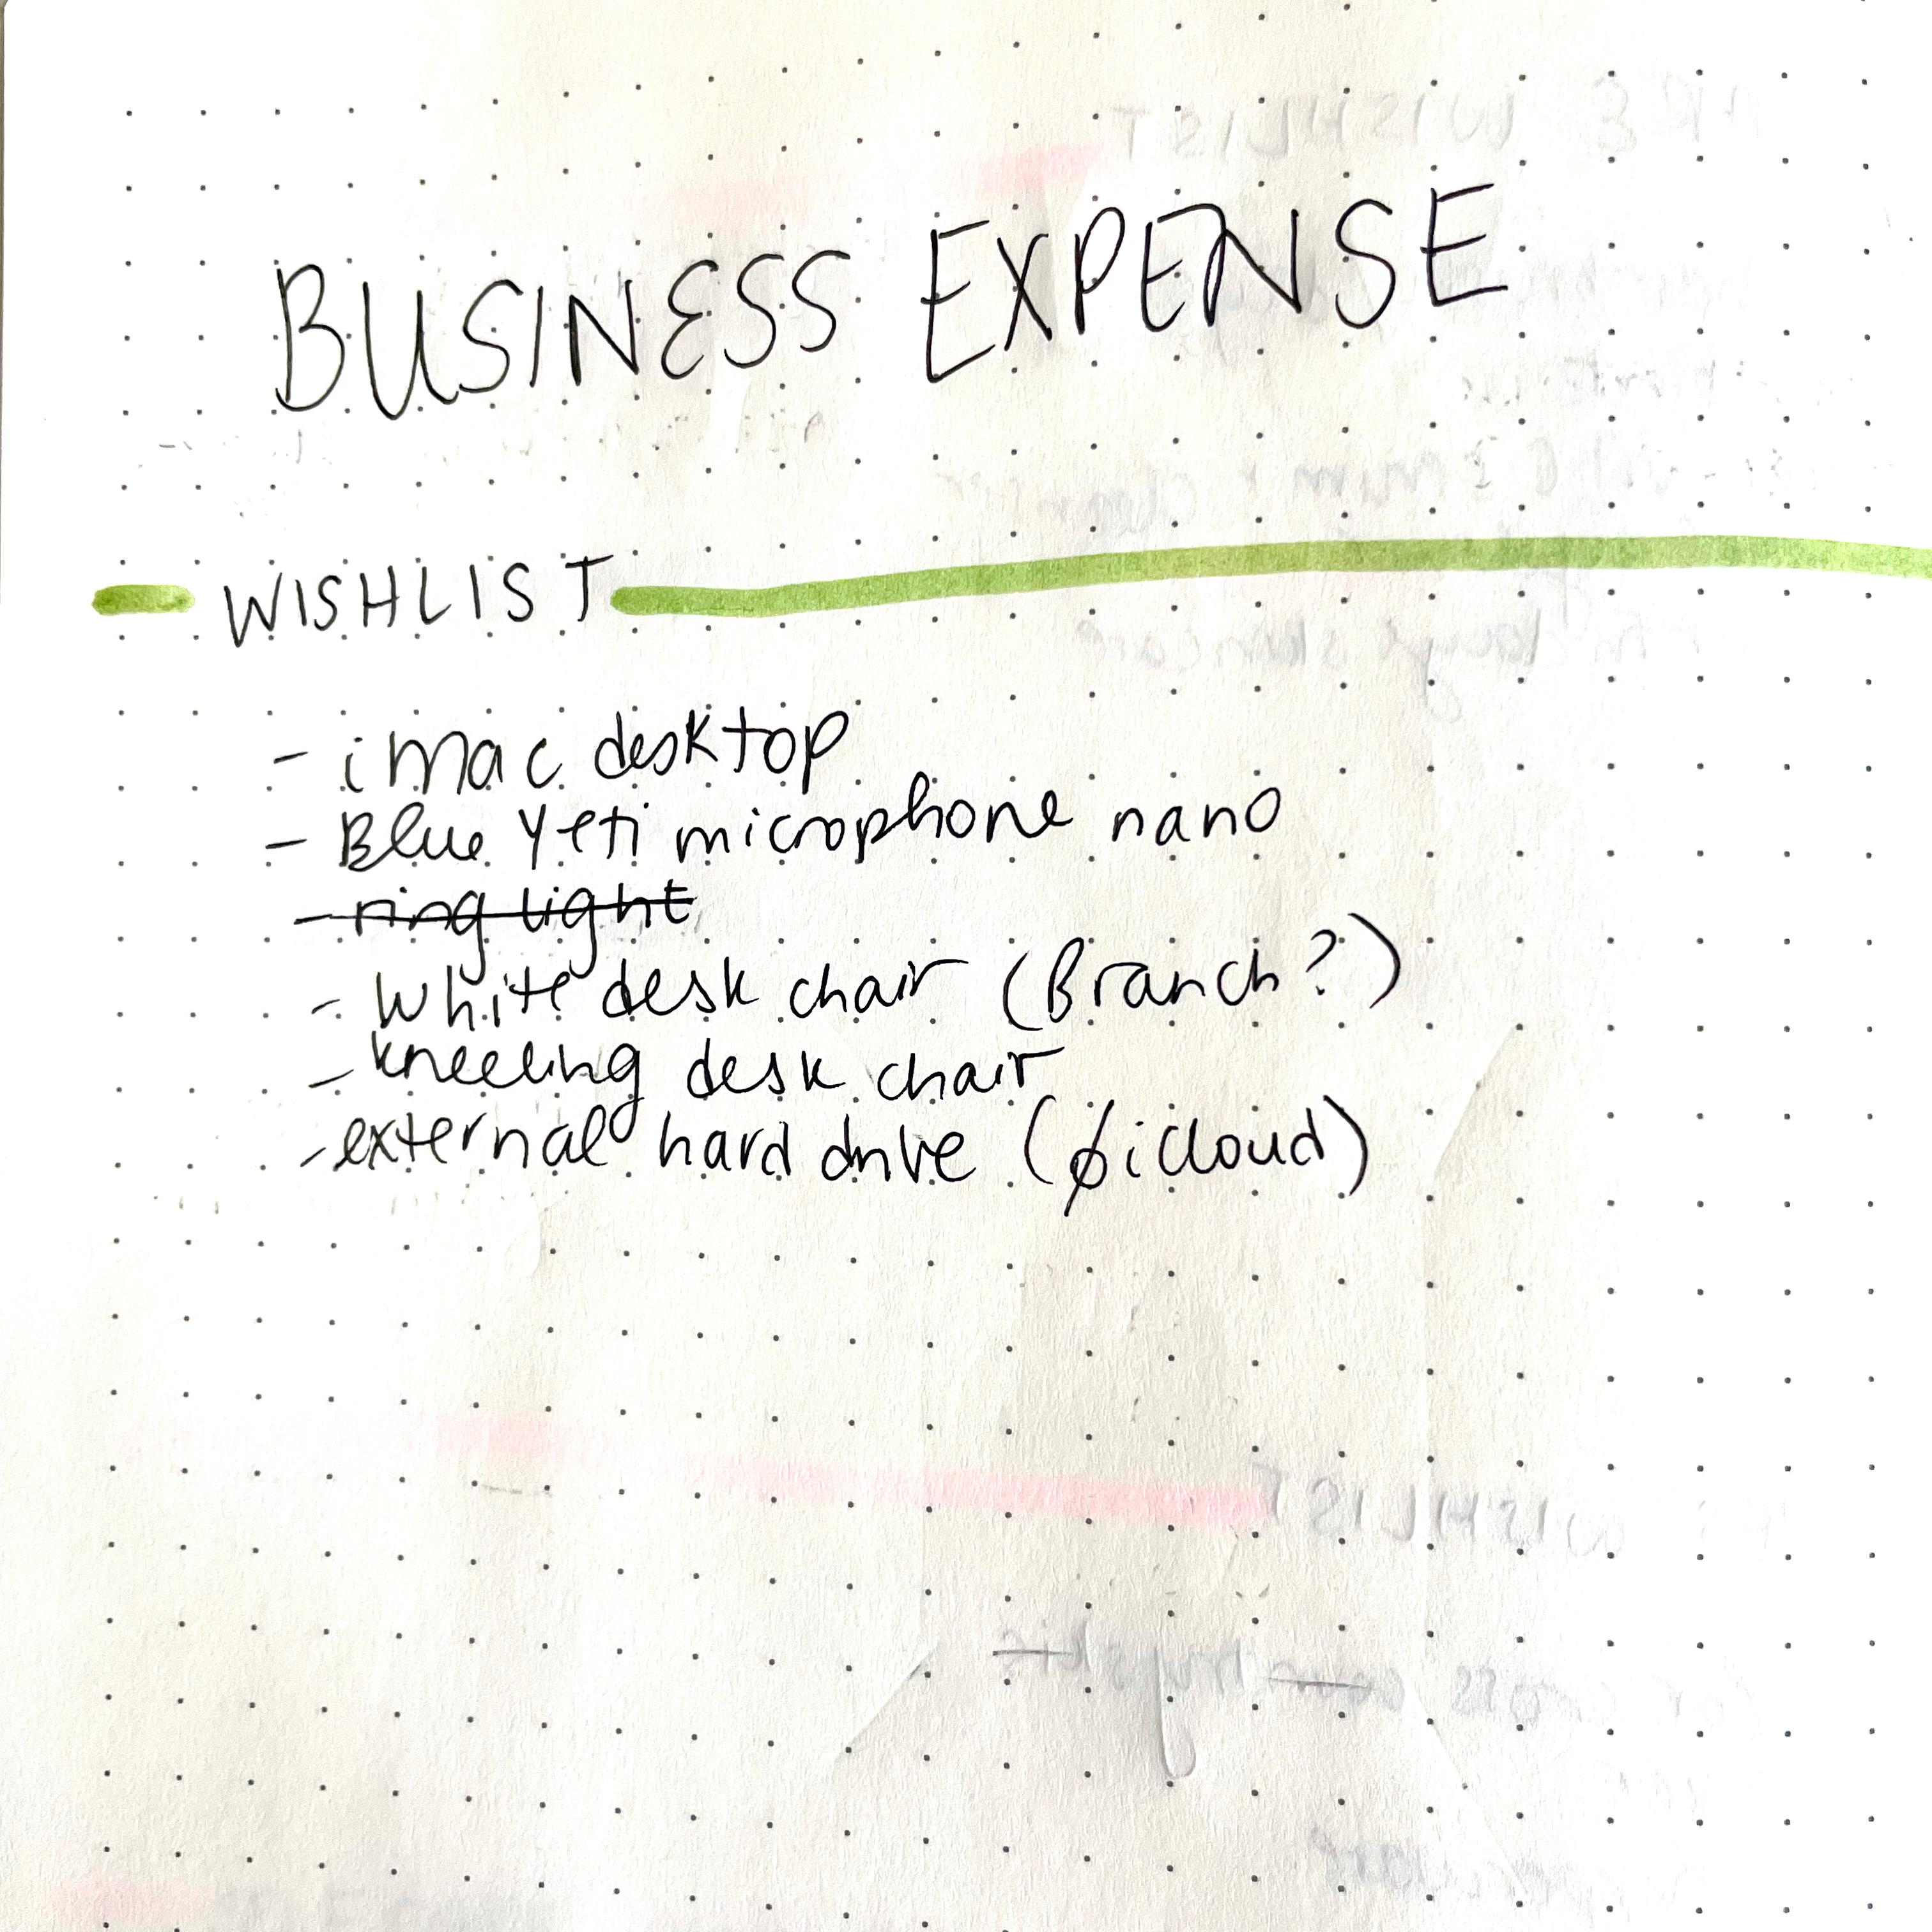 BUSINESS EXPENSE
WISHLIST
- iMac desktop
- Blue Yeti microphone nano
- ring light
- White desk chair (Branch?)
- kneeling desk chair
- external hard drive (∅ icloud)